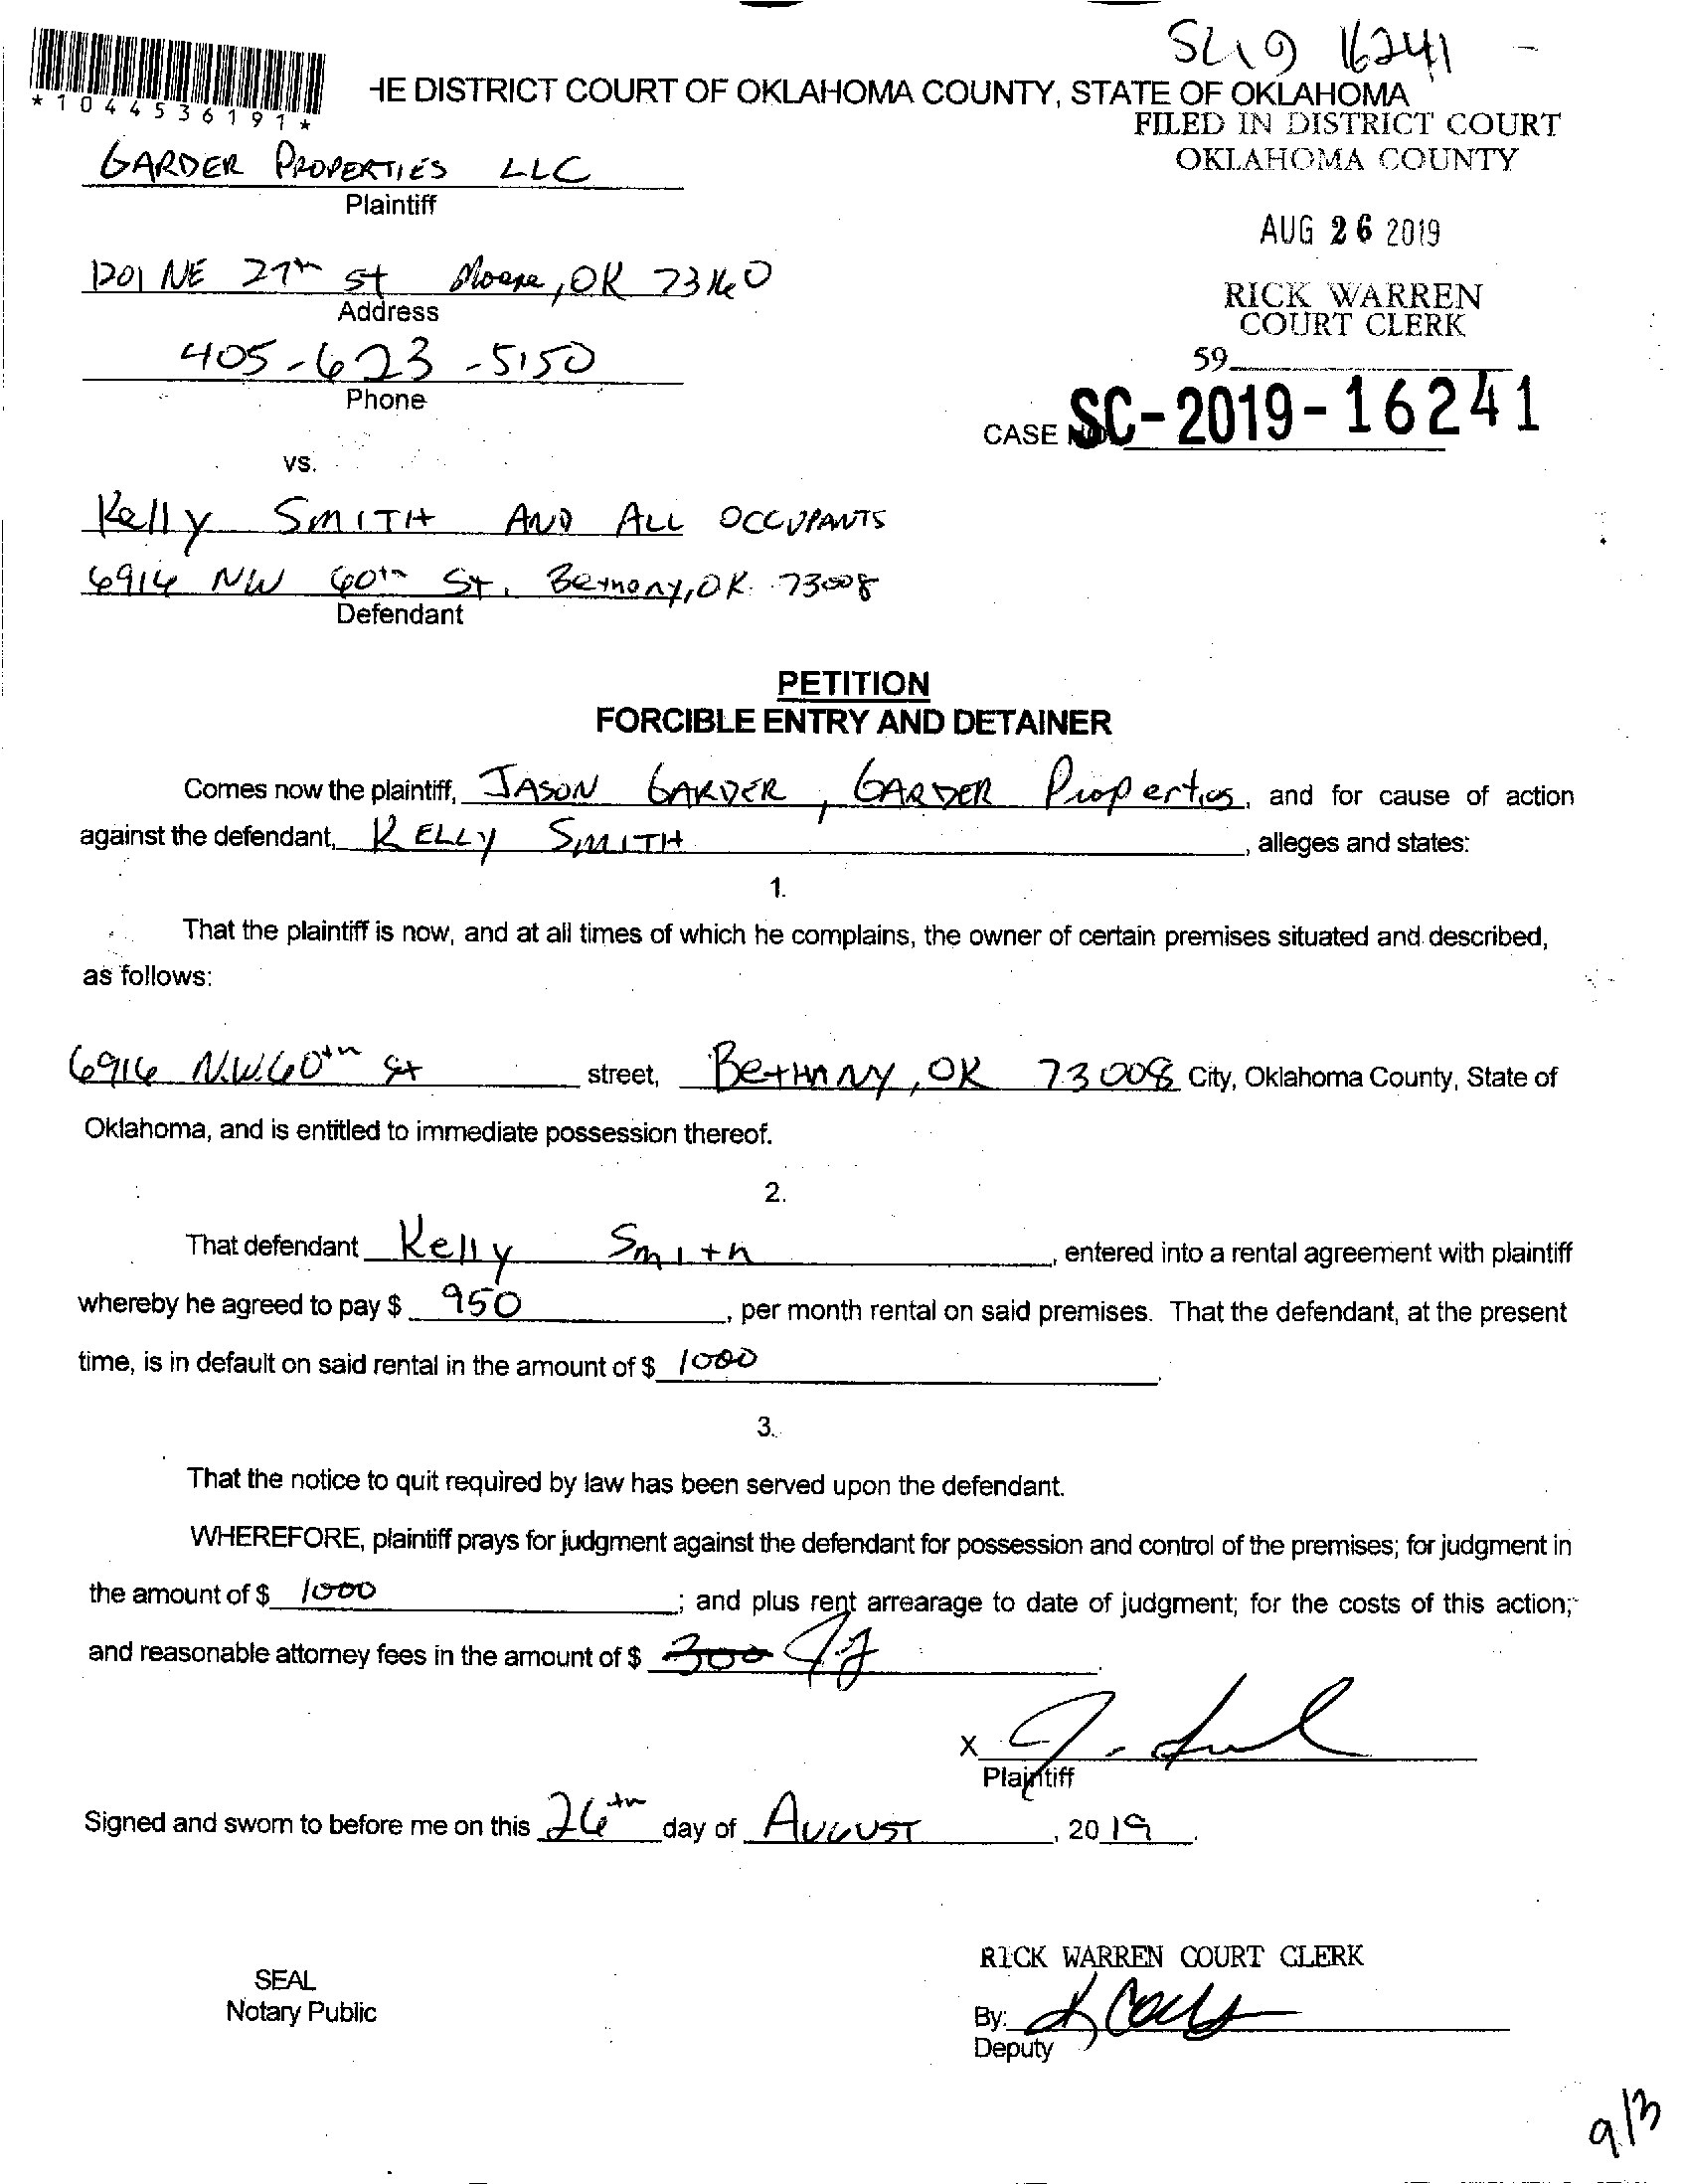 SC19 16241 -
HE DISTRICT COURT OF OKLAHOMA COUNTY, STATE OF OKLAHOMA
*1044536191*
FILED IN DISTRICT COURT
OKLAHOMA COUNTY
GARDER PROPERTIES LLC
Plaintiff
AUG 26 2019
1201 NE 27th St Moore, OK 73160
Address
RICK WARREN
COURT CLERK
405-623-5150
Phone
59
CASE NO. SC-2019-16241
vs.
Kelly SMITH AND ALL OCCUPANTS
6916 NW 60th St. Bethany, OK 73008
Defendant
PETITION
FORCIBLE ENTRY AND DETAINER
Comes now the plaintiff, JASON GARDER, GARDER Properties, and for cause of action
against the defendant, KELLY SMITH, alleges and states:
1.
That the plaintiff is now, and at all times of which he complains, the owner of certain premises situated and described,
as follows:
6916 N.W. 60th St street, BETHANY, OK 73008 City, Oklahoma County, State of
Oklahoma, and is entitled to immediate possession thereof.
2.
That defendant Kelly Smith, entered into a rental agreement with plaintiff
whereby he agreed to pay $ 950, per month rental on said premises. That the defendant, at the present
time, is in default on said rental in the amount of $ 1000.
3.
That the notice to quit required by law has been served upon the defendant.
WHEREFORE, plaintiff prays for judgment against the defendant for possession and control of the premises; for judgment in
the amount of $ 1000; and plus rent arrearage to date of judgment; for the costs of this action;
and reasonable attorney fees in the amount of $ 300 JG.
X
Plaintiff
Signed and sworn to before me on this 26th day of AUGUST, 2019.
RICK WARREN COURT CLERK
SEAL
Notary Public
By:
Deputy
9/3